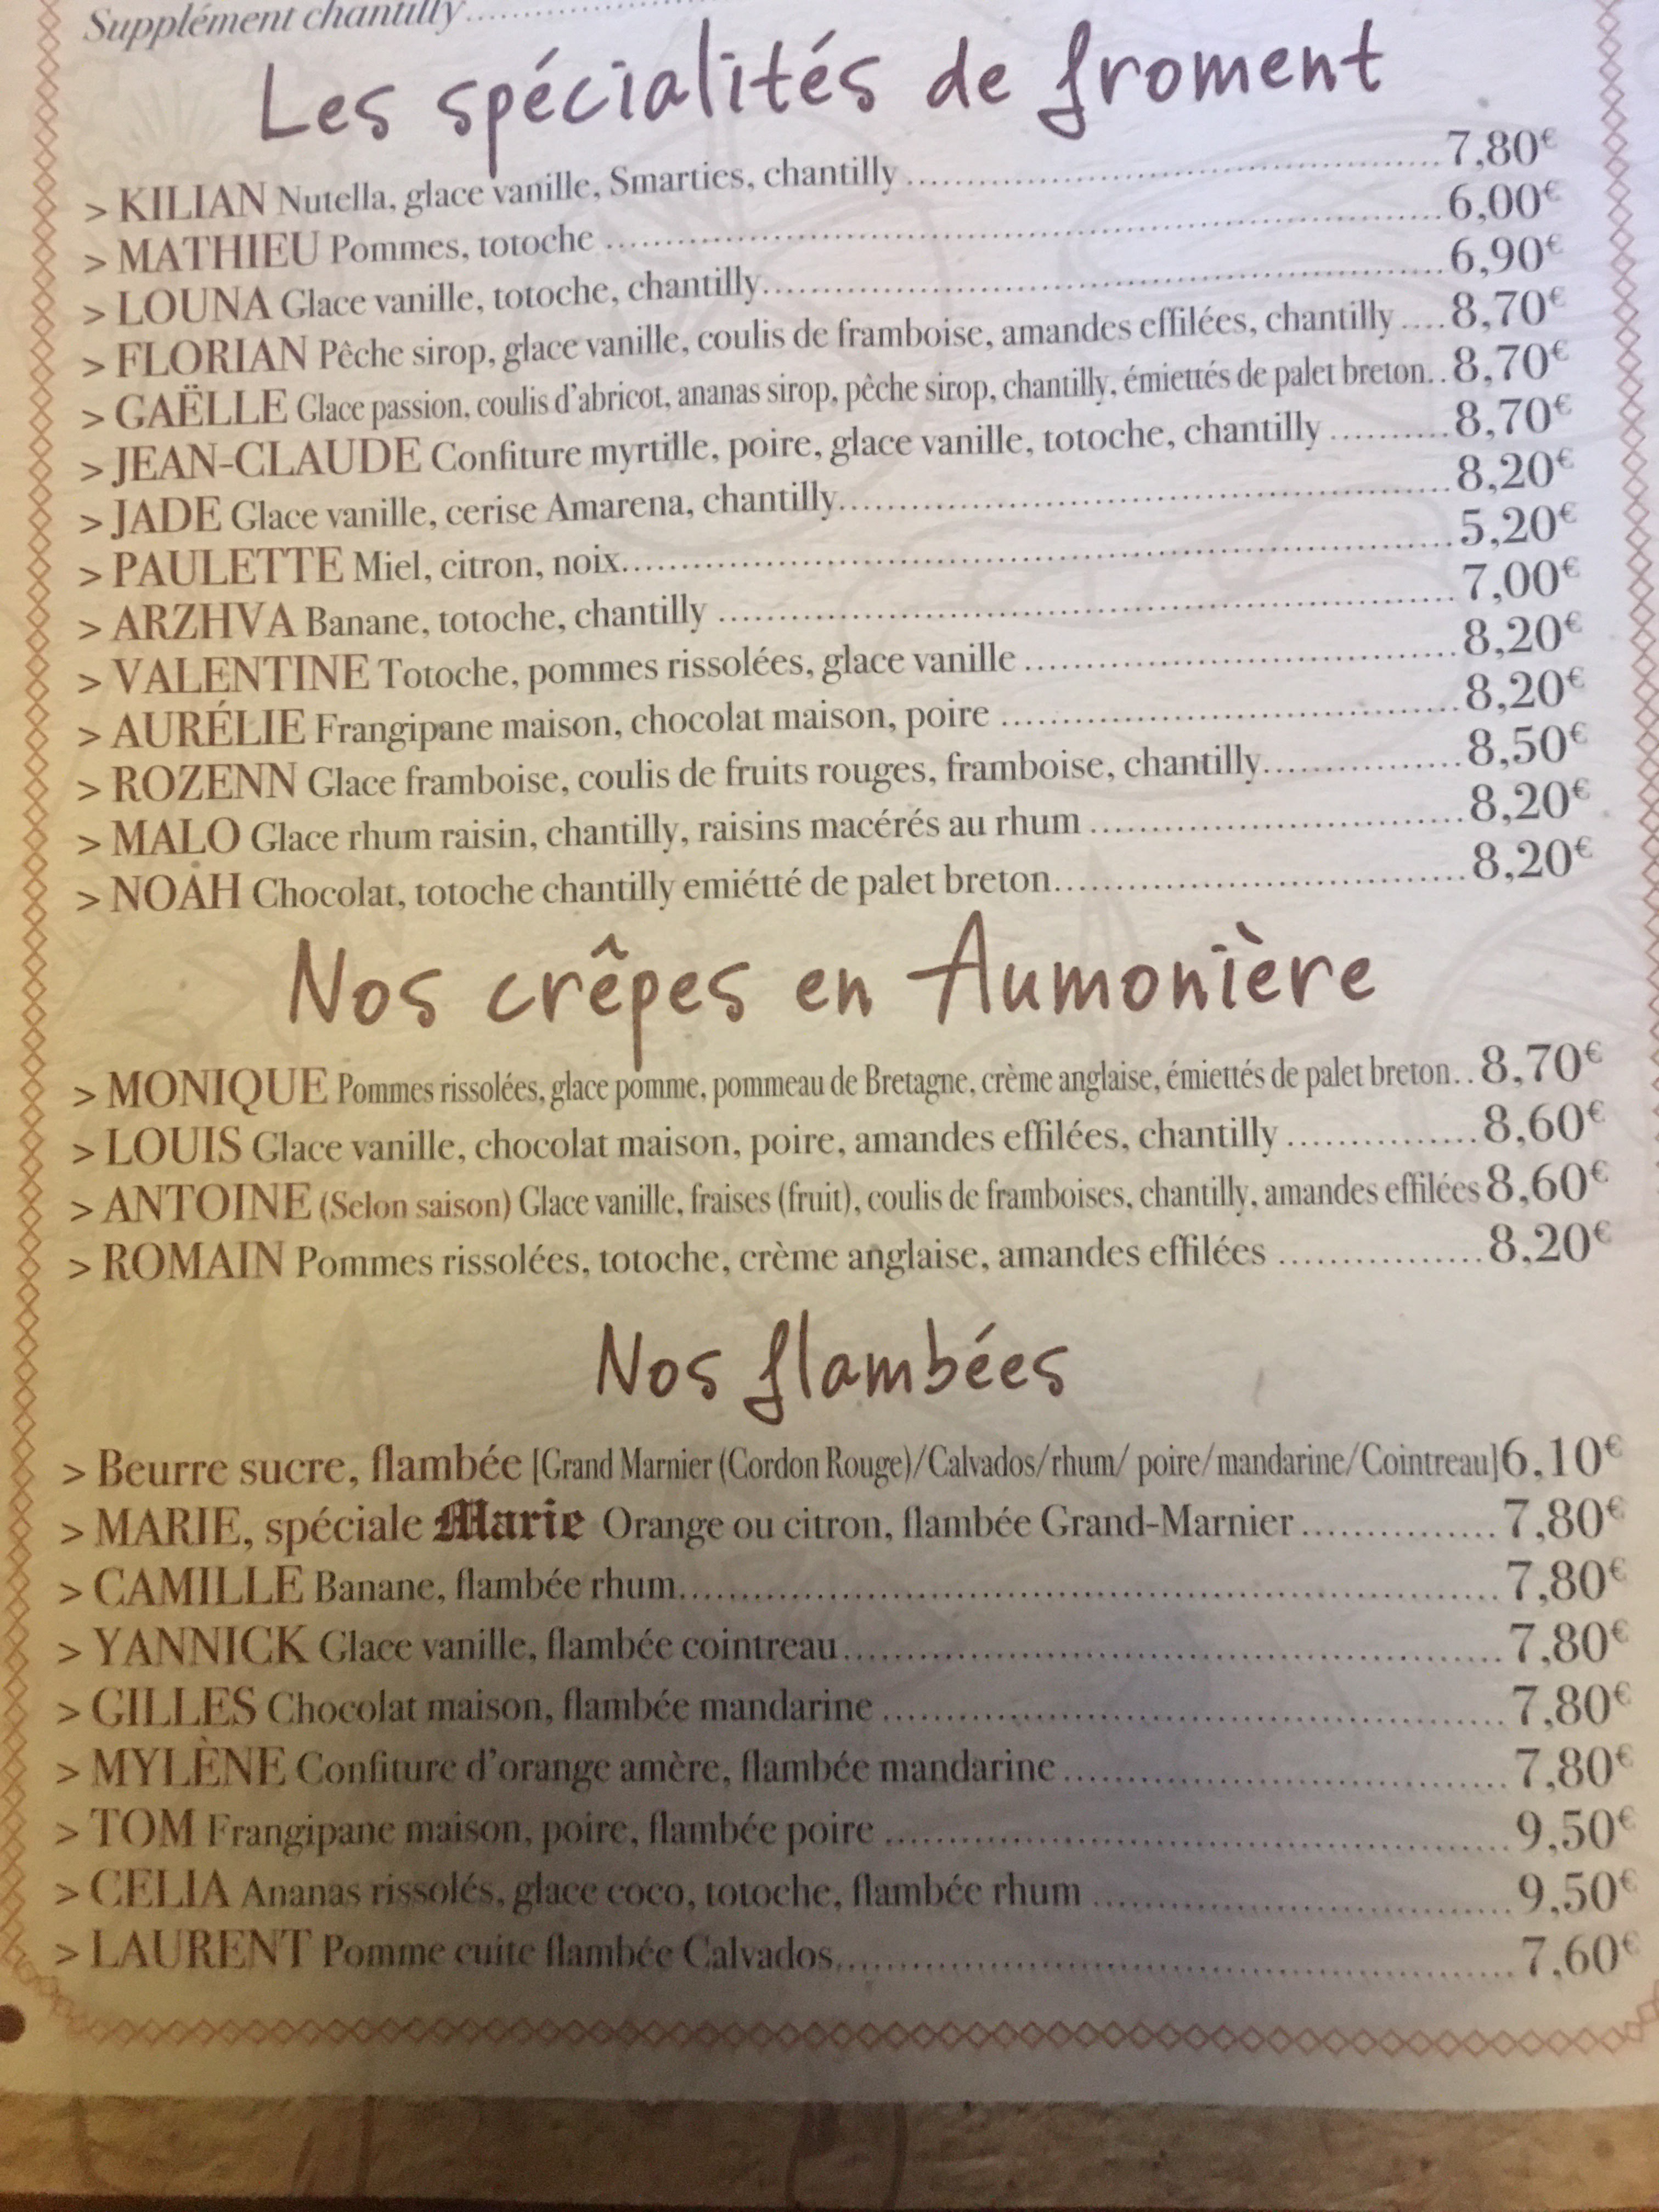 Supplément chantilly
Les spécialités de froment
> KILIAN Nutella, glace vanille, Smarties, chantilly 7,80€
> MATHIEU Pommes, totoche 6,00€
> LOUNA Glace vanille, totoche, chantilly 6,90€
> FLORIAN Pêche sirop, glace vanille, coulis de framboise, amandes effilées, chantilly 8,70€
> GAËLLE Glace passion, coulis d'abricot, ananas sirop, pêche sirop, chantilly, émiettés de palet breton 8,70€
> JEAN-CLAUDE Confiture myrtille, poire, glace vanille, totoche, chantilly 8,70€
> JADE Glace vanille, cerise Amarena, chantilly 8,20€
> PAULETTE Miel, citron, noix 5,20€
> ARZHVA Banane, totoche, chantilly 7,00€
> VALENTINE Totoche, pommes rissolées, glace vanille 8,20€
> AURÉLIE Frangipane maison, chocolat maison, poire 8,20€
> ROZENN Glace framboise, coulis de fruits rouges, framboise, chantilly 8,50€
> MALO Glace rhum raisin, chantilly, raisins macérés au rhum 8,20€
> NOAH Chocolat, totoche chantilly emiétté de palet breton 8,20€
Nos crêpes en Aumonière
> MONIQUE Pommes rissolées, glace pomme, pommeau de Bretagne, crème anglaise, émiettés de palet breton 8,70€
> LOUIS Glace vanille, chocolat maison, poire, amandes effilées, chantilly 8,60€
> ANTOINE (Selon saison) Glace vanille, fraises (fruit), coulis de framboises, chantilly, amandes effilées 8,60€
> ROMAIN Pommes rissolées, totoche, crème anglaise, amandes effilées 8,20€
Nos flambées
> Beurre sucre, flambée [Grand Marnier (Cordon Rouge)/Calvados/rhum/ poire/mandarine/Cointreau] 6,10€
> MARIE, spéciale Marie Orange ou citron, flambée Grand-Marnier 7,80€
> CAMILLE Banane, flambée rhum 7,80€
> YANNICK Glace vanille, flambée cointreau 7,80€
> GILLES Chocolat maison, flambée mandarine 7,80€
> MYLÈNE Confiture d'orange amère, flambée mandarine 7,80€
> TOM Frangipane maison, poire, flambée poire 9,50€
> CELIA Ananas rissolés, glace coco, totoche, flambée rhum 9,50€
> LAURENT Pomme cuite flambée Calvados 7,60€